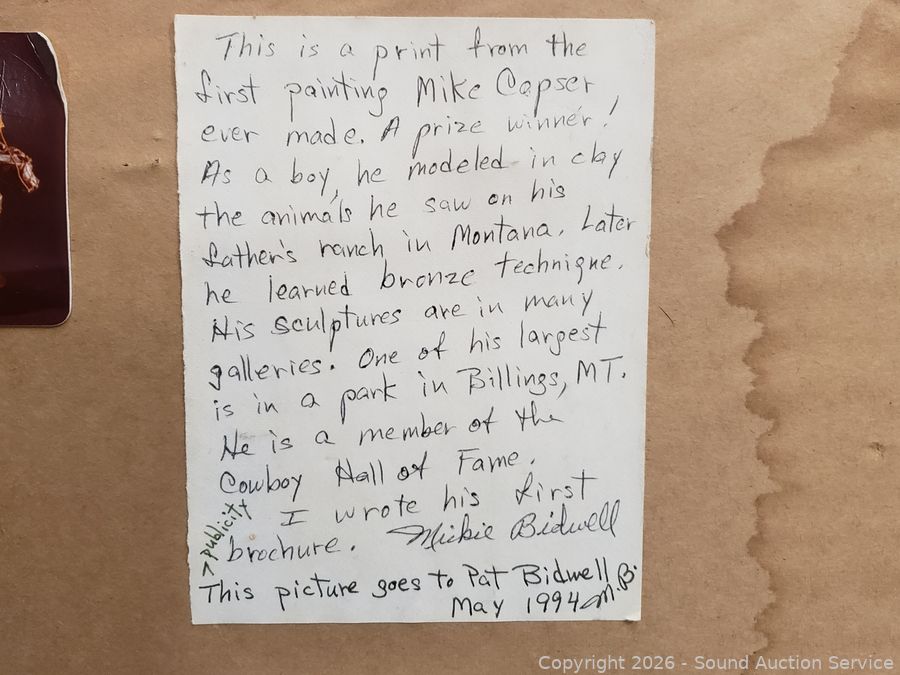 This is a print from the
first painting Mike Capser
ever made. A prize winner!
As a boy, he modeled in clay
the animals he saw on his
father's ranch in Montana. Later
he learned bronze technique.
His sculptures are in many
galleries. One of his largest
is in a park in Billings, MT.
He is a member of the
Cowboy Hall of Fame.
I wrote his first
>publicity
brochure. Mickie Bidwell
This picture goes to Pat Bidwell
May 1994 M.B.
Copyright 2026 - Sound Auction Service